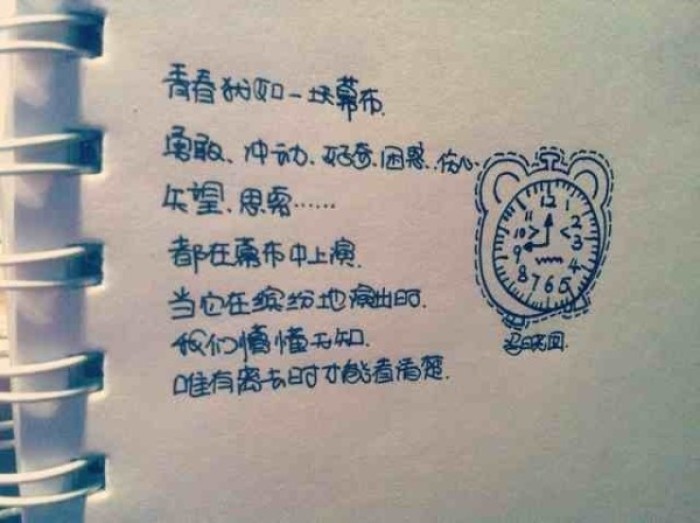 青春犹如一块幕布.
勇敢、冲动、好奇、困惑、伤心、
失望、思索……
都在幕布中上演.
当它在缤纷地演出时.
我们懵懂无知.
唯有离去时才能看清楚.
12
1
2
3
4
5
6
7
8
9
10
11